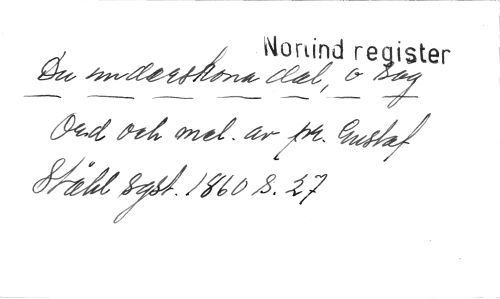 Norlind register
Du underskona dal, o sag
Ord och mel. av pr. Gustaf
Ståhl sgst. 1860 s. 27